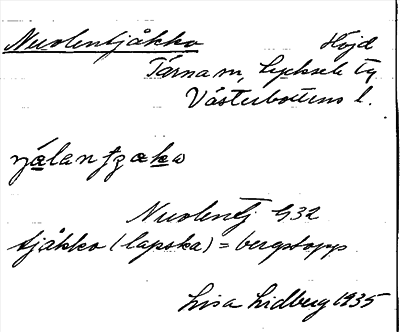 Nuolentjåkko Höjd
Tärna sn, Lycksele tg
Västerbottens l.
njálan tzako
Nuolentj G32
tjåkko (lapska) = bergstopp
Lisa Lidberg 1935